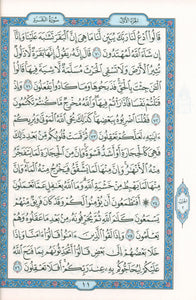 الجزء الأول
سورة البقرة
قَالُوا۟ ٱدْعُ لَنَا رَبَّكَ يُبَيِّن لَّنَا مَا هِىَ إِنَّ ٱلْبَقَرَ تَشَٰبَهَ عَلَيْنَا وَإِنَّآ
إِن شَآءَ ٱللَّهُ لَمُهْتَدُونَ ٧٠ قَالَ إِنَّهُۥ يَقُولُ إِنَّهَا بَقَرَةٌ لَّا ذَلُولٌ
تُثِيرُ ٱلْأَرْضَ وَلَا تَسْقِى ٱلْحَرْثَ مُسَلَّمَةٌ لَّا شِيَةَ فِيهَا قَالُوا۟
ٱلْـَٰٔنَ جِئْتَ بِٱلْحَقِّ فَذَبَحُوهَا وَمَا كَادُوا۟ يَفْعَلُونَ ٧١ وَإِذْ
قَتَلْتُمْ نَفْسًا فَٱدَّٰرَْٰٔتُمْ فِيهَا وَٱللَّهُ مُخْرِجٌ مَّا كُنتُمْ تَكْتُمُونَ ٧٢
فَقُلْنَا ٱضْرِبُوهُ بِبَعْضِهَا كَذَٰلِكَ يُحْىِ ٱللَّهُ ٱلْمَوْتَىٰ وَيُرِيكُمْ
ءَايَٰتِهِۦ لَعَلَّكُمْ تَعْقِلُونَ ٧٣ ثُمَّ قَسَتْ قُلُوبُكُم مِّنۢ بَعْدِ ذَٰلِكَ
فَهِىَ كَٱلْحِجَارَةِ أَوْ أَشَدُّ قَسْوَةً وَإِنَّ مِنَ ٱلْحِجَارَةِ لَمَا يَتَفَجَّرُ
مِنْهُ ٱلْأَنْهَٰرُ وَإِنَّ مِنْهَا لَمَا يَشَّقَّقُ فَيَخْرُجُ مِنْهُ ٱلْمَآءُ وَإِنَّ
مِنْهَا لَمَا يَهْبِطُ مِنْ خَشْيَةِ ٱللَّهِ وَمَا ٱللَّهُ بِغَٰفِلٍ عَمَّا تَعْمَلُونَ
٧٤ أَفَتَطْمَعُونَ أَن يُؤْمِنُوا۟ لَكُمْ وَقَدْ كَانَ فَرِيقٌ مِّنْهُمْ
يَسْمَعُونَ كَلَٰمَ ٱللَّهِ ثُمَّ يُحَرِّفُونَهُۥ مِنۢ بَعْدِ مَا عَقَلُوهُ وَهُمْ
يَعْلَمُونَ ٧٥ وَإِذَا لَقُوا۟ ٱلَّذِينَ ءَامَنُوا۟ قَالُوٓا۟ ءَامَنَّا وَإِذَا
خَلَا بَعْضُهُمْ إِلَىٰ بَعْضٍ قَالُوٓا۟ أَتُحَدِّثُونَهُم بِمَا فَتَحَ ٱللَّهُ
عَلَيْكُمْ لِيُحَآجُّوكُم بِهِۦ عِندَ رَبِّكُمْ أَفَلَا تَعْقِلُونَ ٧٦
١١